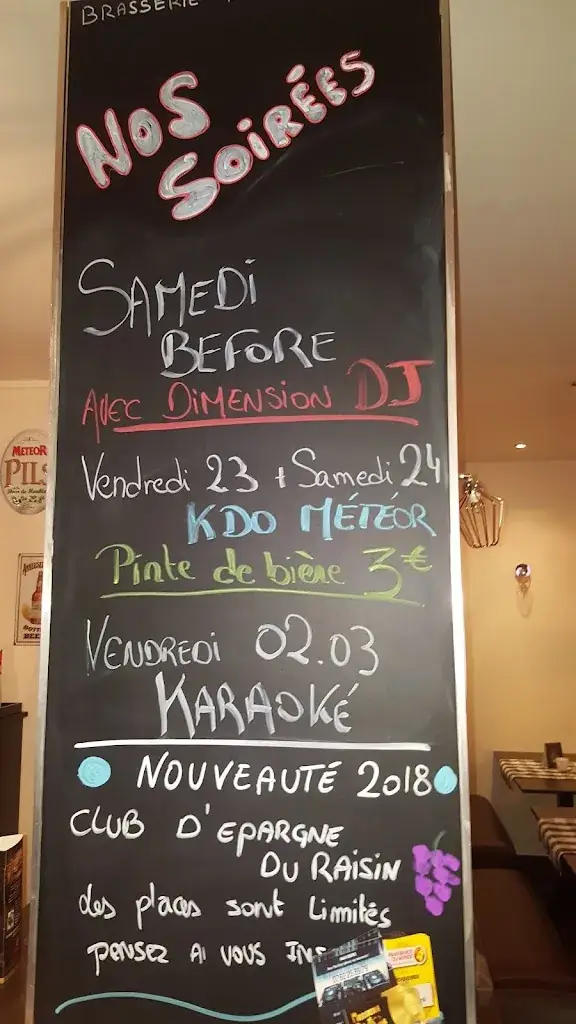 BRASSERIE
NOS
SOIRÉES
SAMEDI
BEFORE
AVEC DIMENSION DJ
Vendredi 23 + Samedi 24
KDO MÉTÉOR
Pinte de bière 3€
VENDREDI 02.03
KARAOKÉ
NOUVEAUTÉ 2018
CLUB D'EPARGNE
DU RAISIN
des places sont Limités
PENSEZ AI VOUS INS
METEOR
PILS